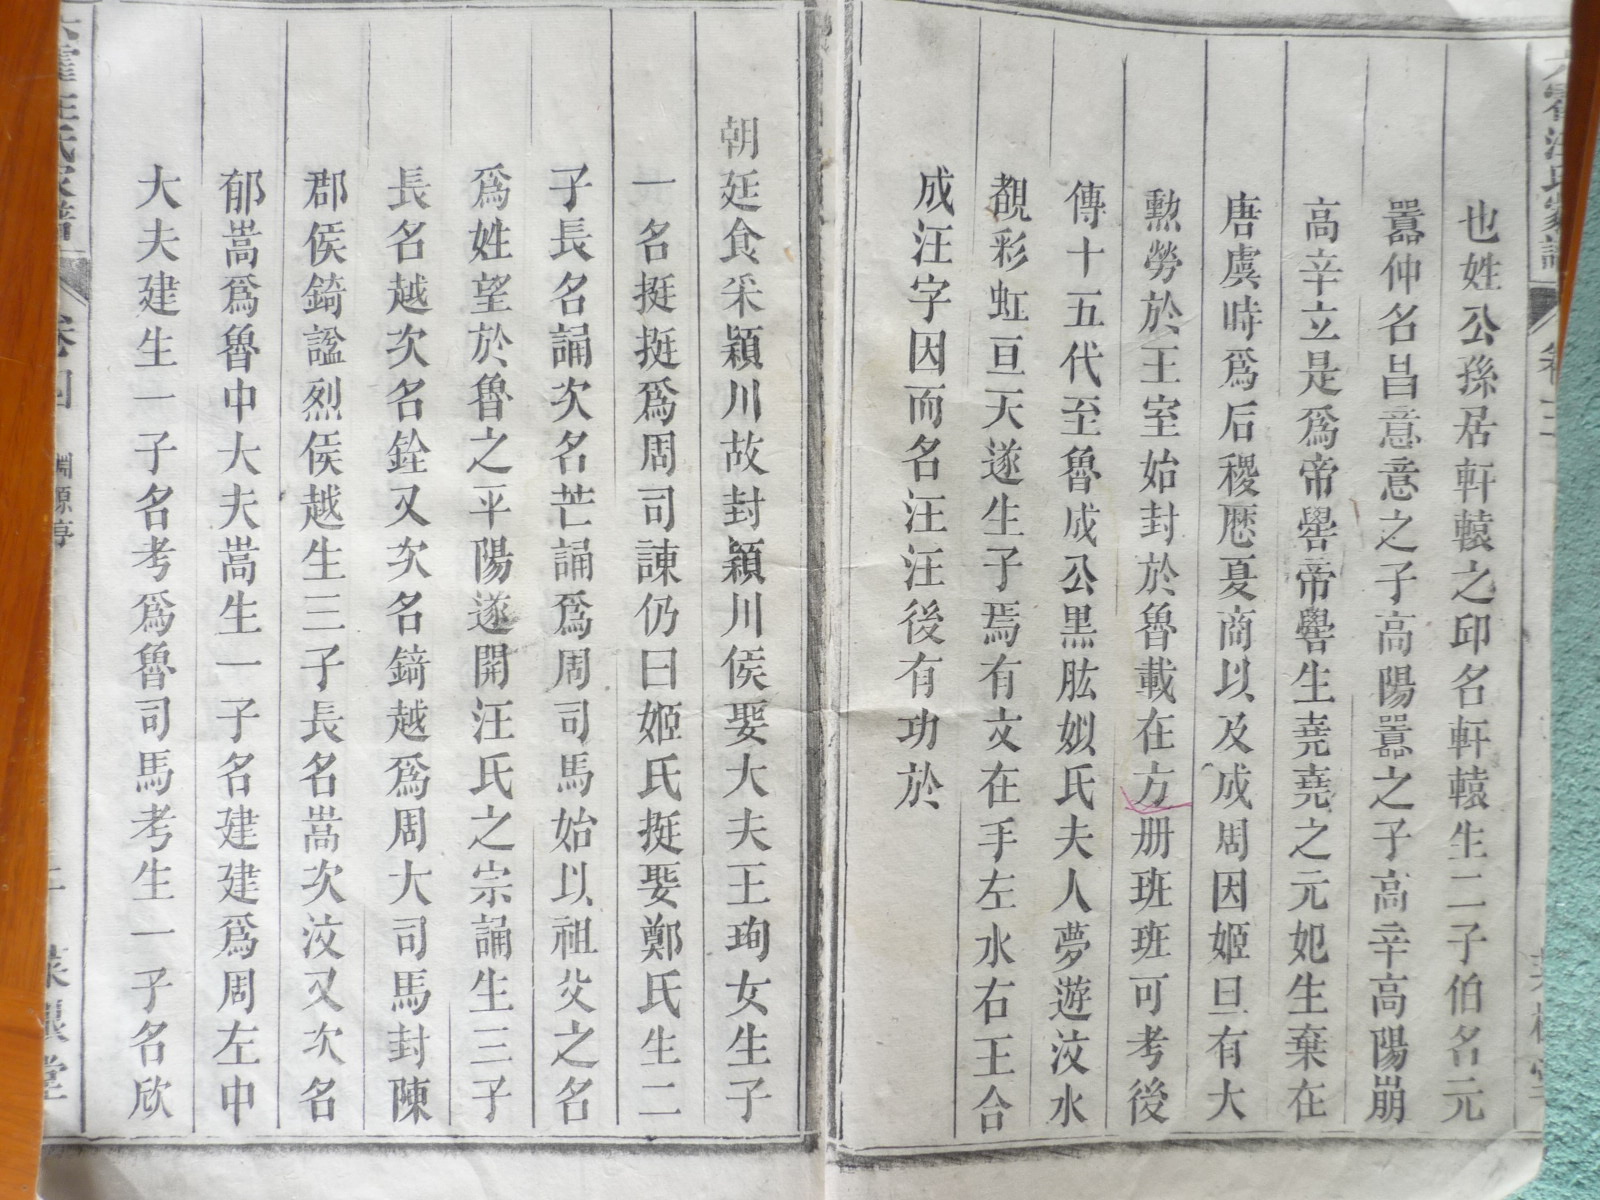 也姓公孫居軒轅之邱名軒轅生二子伯名元
囂仲名昌意意之子高陽囂之子高辛高陽崩
高辛立是爲帝嚳帝嚳生堯堯之元妃生棄在
唐虞時爲后稷歷夏商以及成周因姬旦有大
勲勞於王室始封於魯載在方册班班可考後
傳十五代至魯成公黒肱姒氏夫人夢遊汶水
覩彩虹亘天遂生子焉有文在手左水右王合
成汪字因而名汪汪後有功於
朝廷食采潁川故封潁川侯娶大夫王珣女生子
一名挺挺爲周司諫仍曰姬氏挺娶鄭氏生二
子長名誦次名芒誦爲周司馬始以祖父之名
爲姓望於魯之平陽遂開汪氏之宗誦生三子
長名越次名銓又次名錡越爲周大司馬封陳
郡侯錡謚烈侯越生三子長名嵩次汶又次名
郁嵩爲魯中大夫嵩生一子名建建爲周左中
大夫建生一子名考爲魯司馬考生一子名欣
汪氏家譜
淵源序